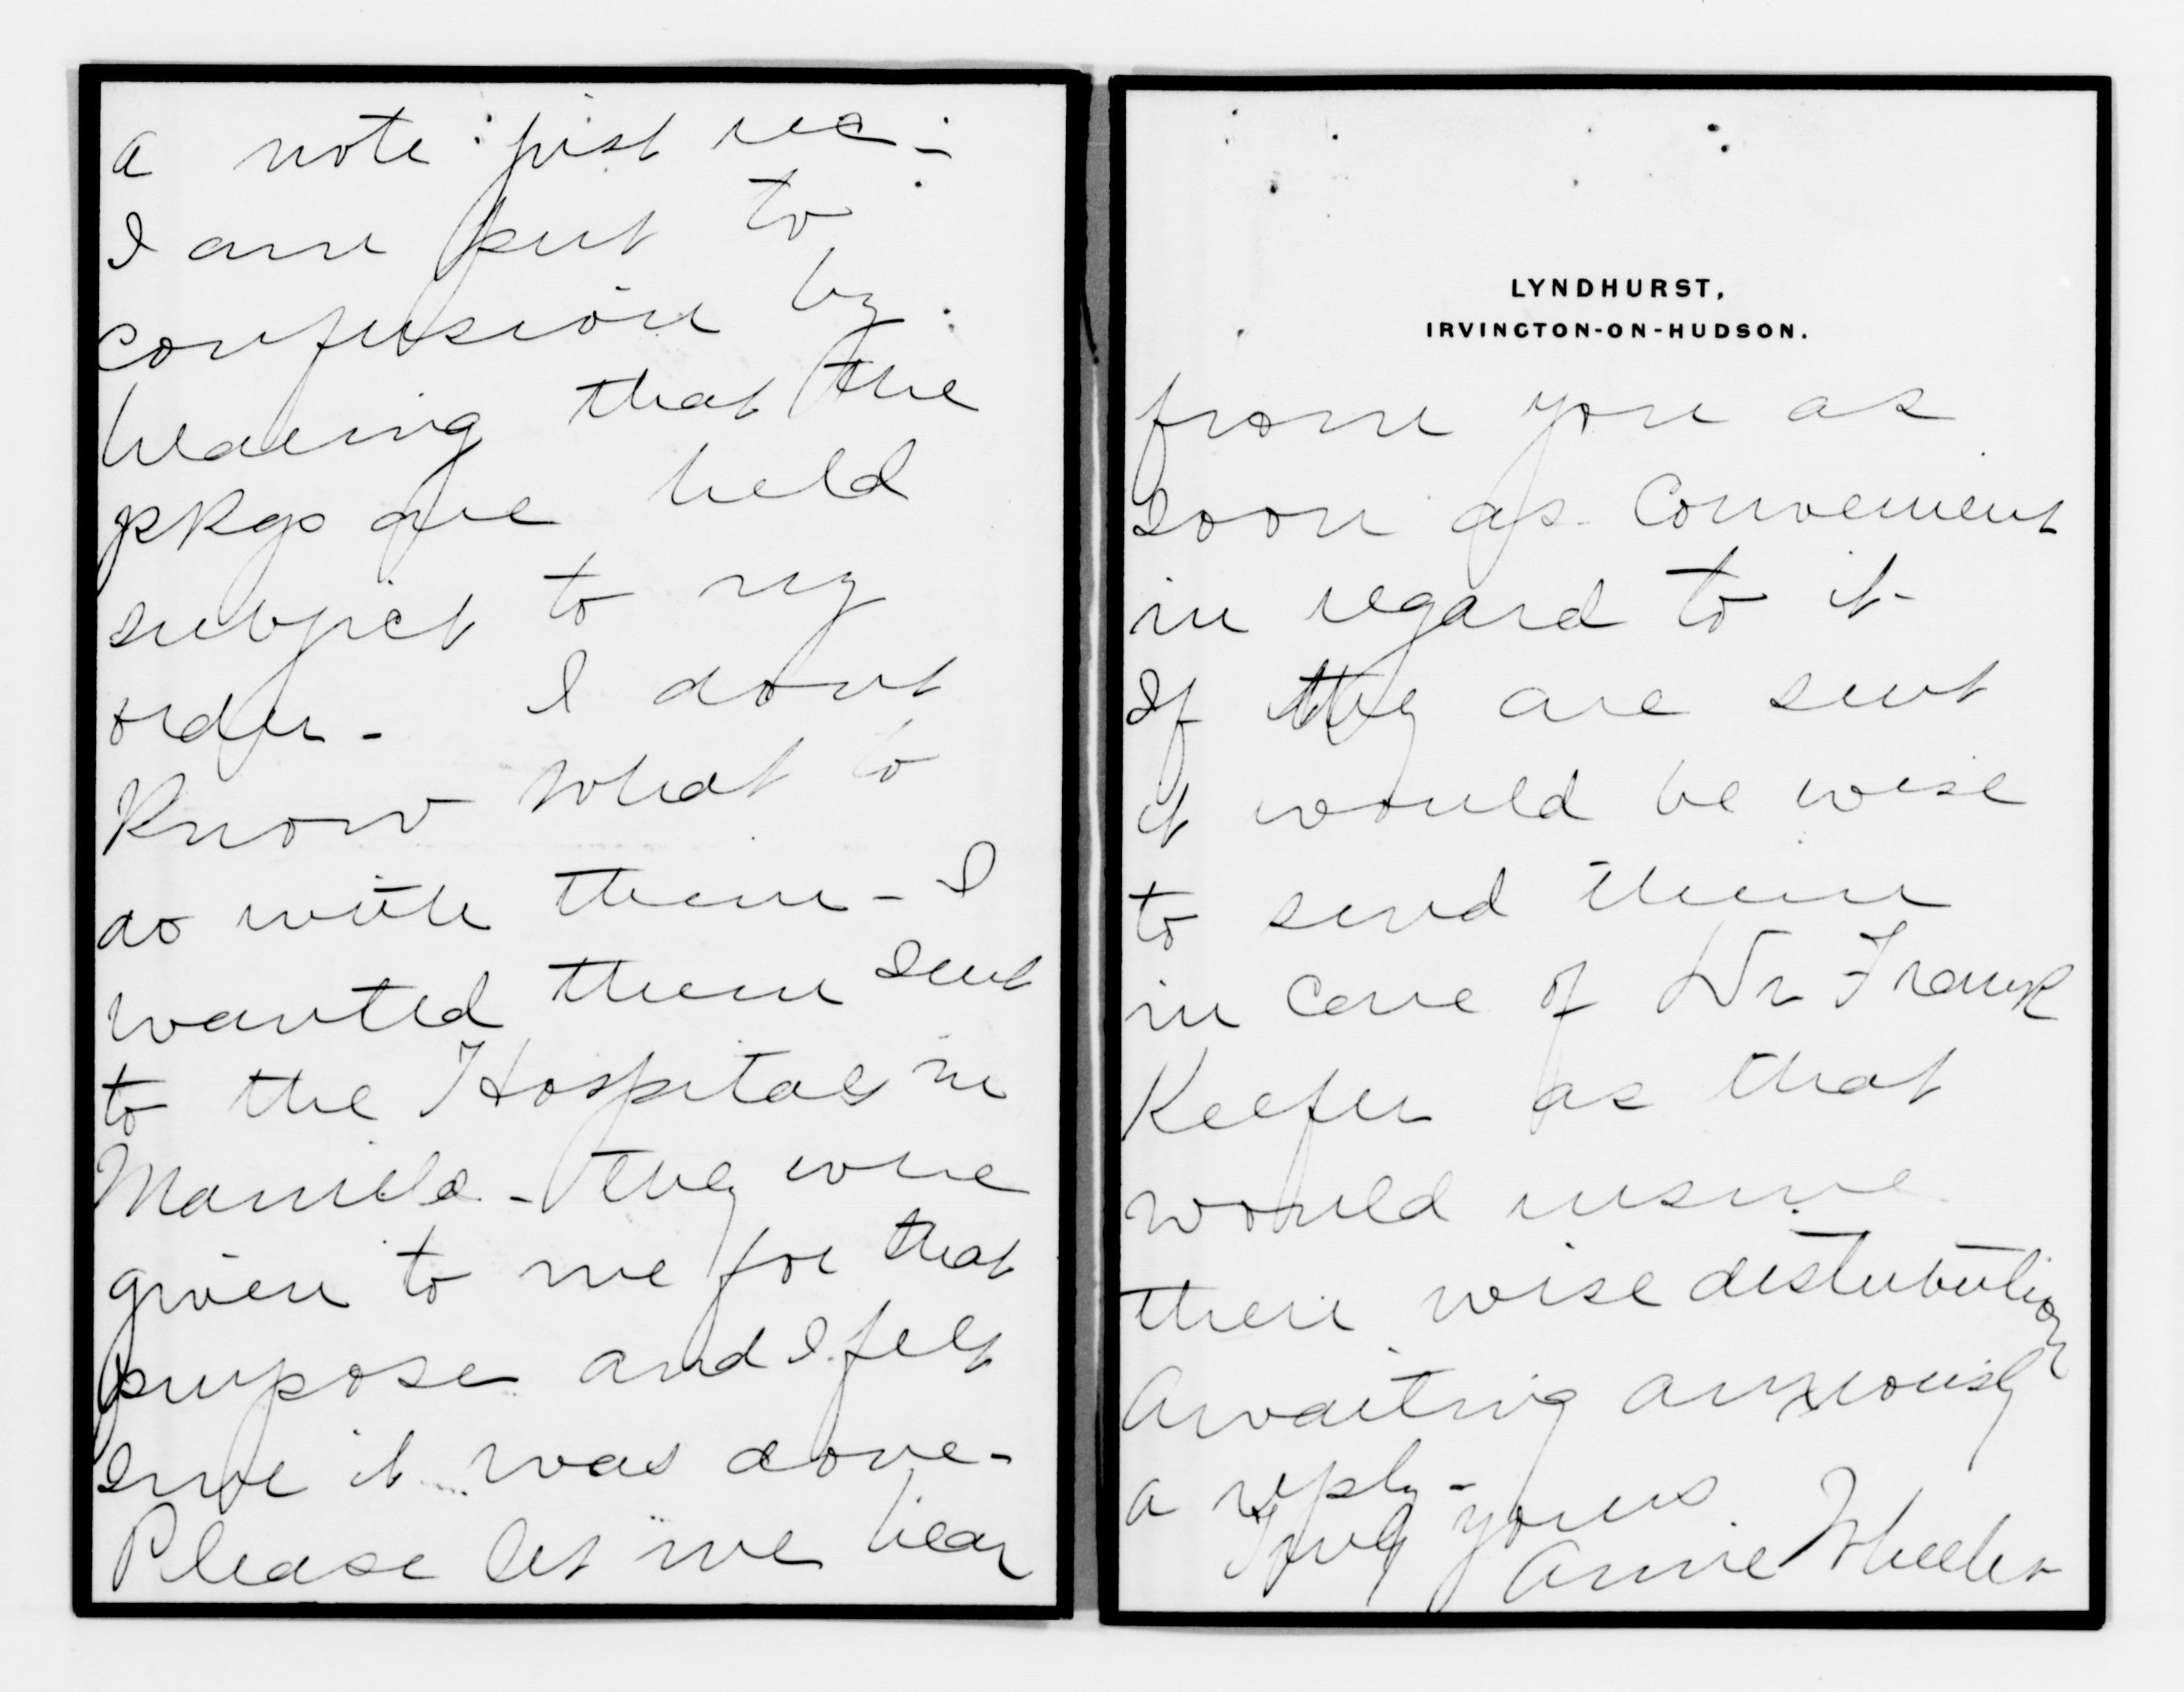 a note just rec-
I am put to
confusion by
hearing that the
pkgs are held
subject to my
order - I dont
know what to
do with them - I
wanted them sent
to the Hospitals in
Manila - they were
given to me for that
purpose and I felt
sure it was done -
Please let me hear
LYNDHURST,
IRVINGTON-ON-HUDSON.
from you as
soon as convenient
in regard to it -
If they are sent
it would be wise
to send them
in care of Dr Frank
Keefer as that
would insure
their wise distribution
Awaiting anxiously
a reply -
Truly yours
Annie Wheeler